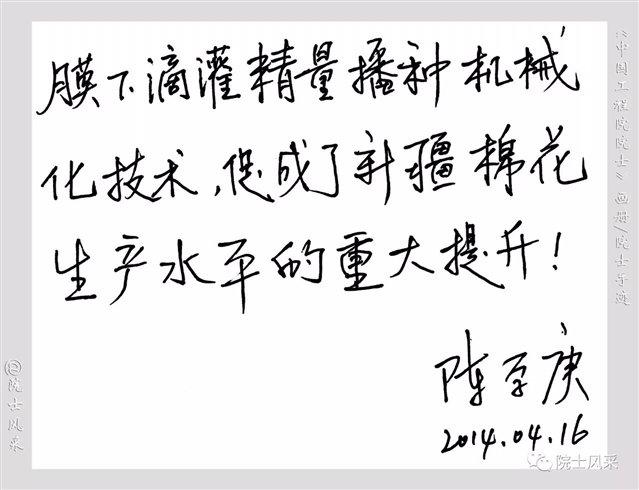 膜下滴灌精量播种机械
化技术,促成了新疆棉花
生产水平的重大提升!
陈学庚
2014.04.16
《中国工程院院士》画册/院士手迹
@院士风采
院士风采